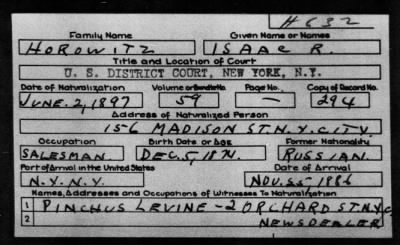 H632
Family Name Given Name or Names
HOROWITZ ISAAC R.
Title and Location of Court
U. S. DISTRICT COURT, NEW YORK, N.Y.
Date of Naturalization Volume or Bundle No. Page No. Copy of Record No.
JUNE. 2, 1897 59 — 294
Address of Naturalized Person
156 MADISON ST. N.Y. CITY.
Occupation Birth Date or Age Former Nationality
SALESMAN. DEC. 5, RUSSIAN.
Port of Arrival in the United States Date of Arrival
N.Y. N.Y. NOV. 1886
Names, Addresses and Occupations of Witnesses To Naturalization
1 PINCHUS LEVINE - 2 ORCHARD ST. N.Y.C.
2 NEWSDEALER